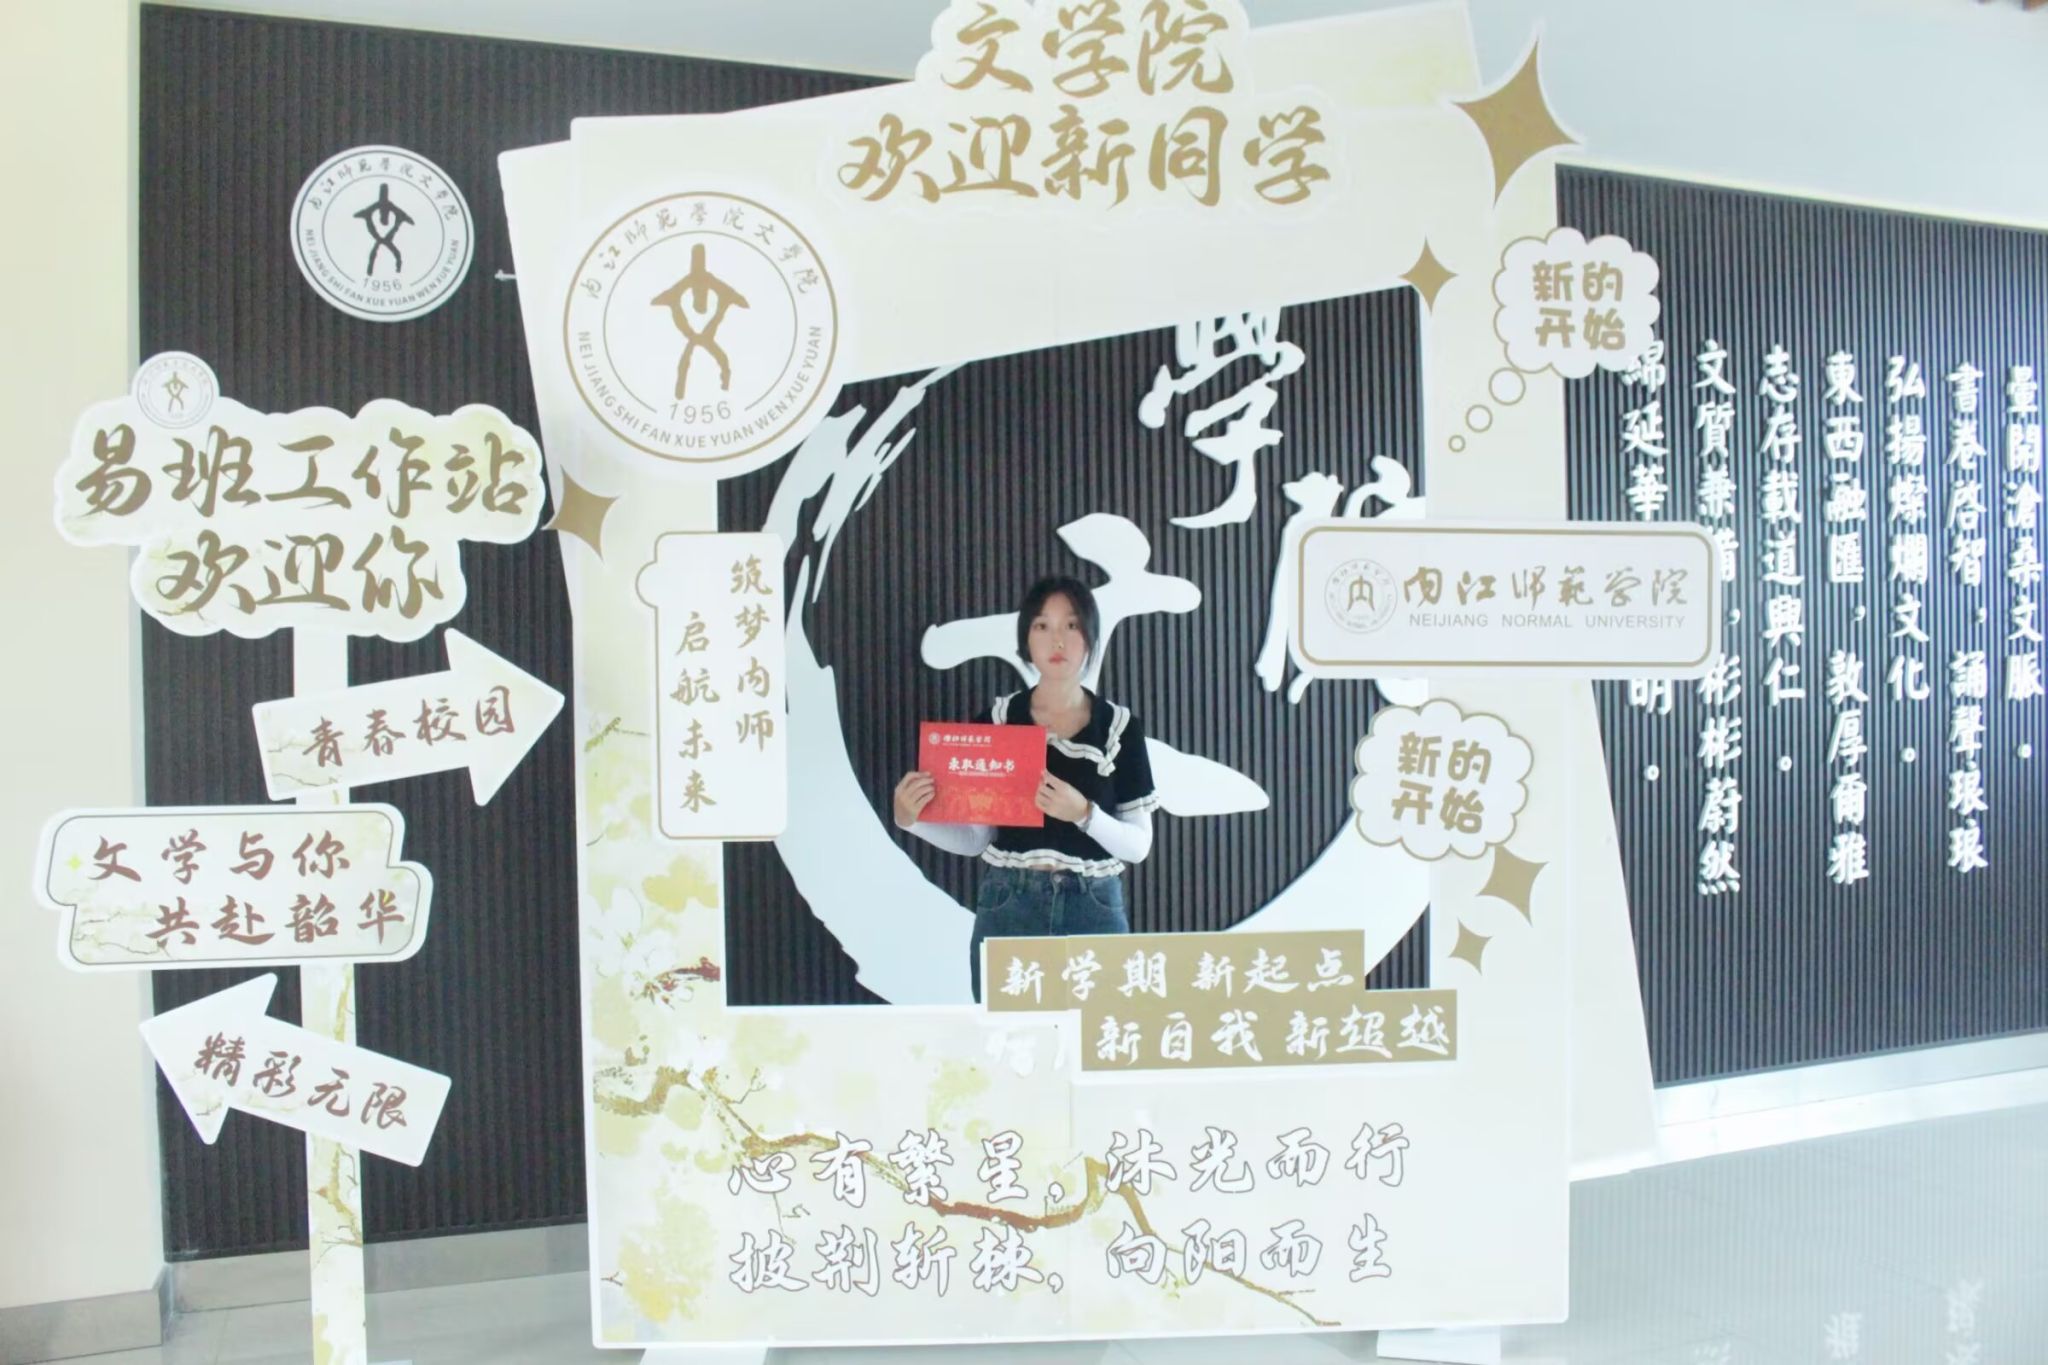 文学院
欢迎新同学
内江師範學院文學院
1956
NEI JIANG SHI FAN XUE YUAN WEN XUE YUAN
易班工作站
欢迎你
青春校园
文学与你
共赴韶华
精彩无限
内江師範學院文學院
1956
NEI JIANG SHI FAN XUE YUAN WEN XUE YUAN
筑梦内师
启航未来
學
院
录取通知书
新的
开始
内江师范学院
NEIJIANG NORMAL UNIVERSITY
新的
开始
新学期 新起点
新自我 新超越
心有繁星，沐光而行
披荆斩棘，向阳而生
暈開滄桑文脈。
書卷啓智，誦聲琅琅
弘揚燦爛文化。
東西融匯，敦厚爾雅
志存載道興仁。
文質兼備，彬彬蔚然
綿延華 明。